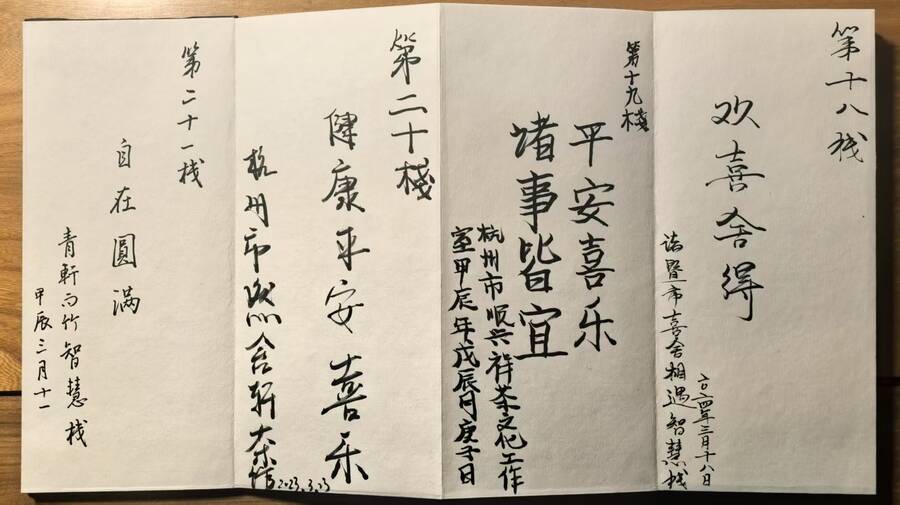 第十八栈
欢喜舍得
二〇二四年三月十八日
诸暨市喜舍相遇智慧栈
第十九棧
平安喜乐
堵事皆宜
杭州市顺兴祥茶文化工作
室甲辰年戊辰月庚子日
第二十棧
健康平安喜乐
杭州市舍轩茶
第二十一栈
自在圓满
青軒竹智慧栈
甲辰三月十一